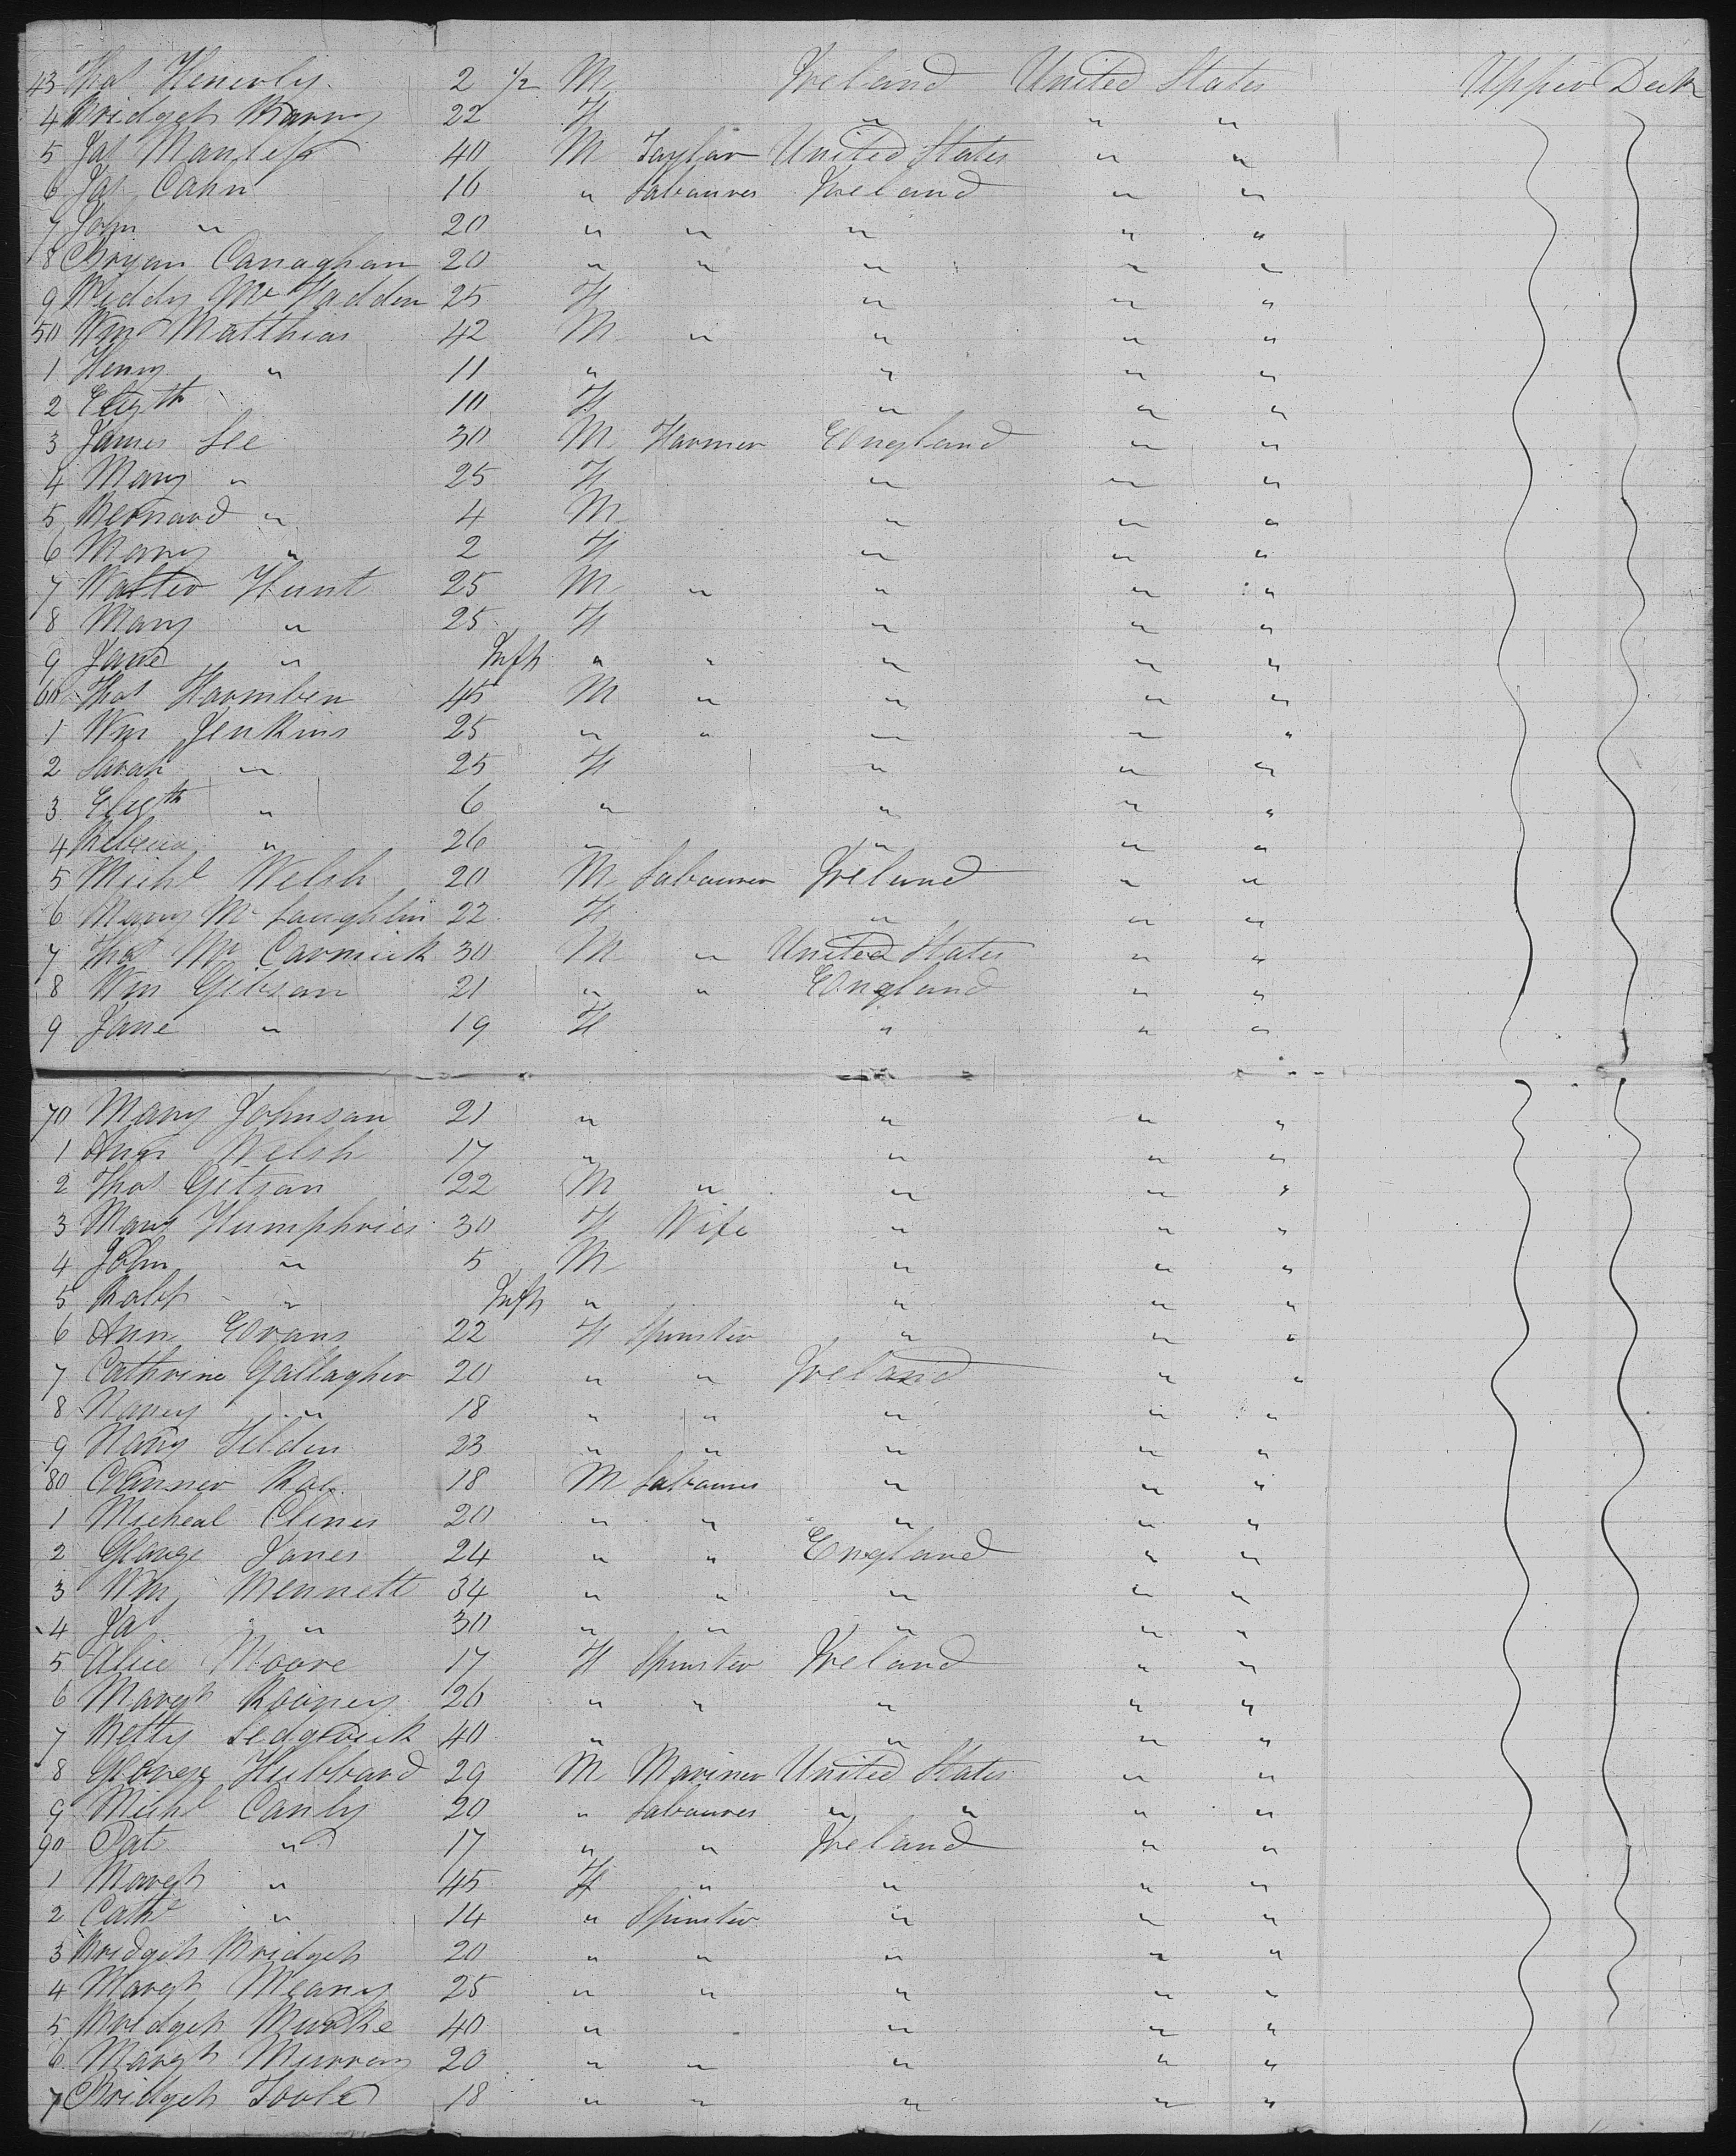 43 Thos Henerly 2 1/2 M Ireland United States Upper Deck
4 Bridget 22 F " " "
5 Jas 40 M Taylor United States " "
6 Jas Cahn 16 " Labourer Ireland " "
7 John " 20 " " " " "
8 Bryan Canaghan 20 " " " " "
9 Biddy Mc Fadden 25 F " " "
50 Wm Matthias 42 M " " " "
1 Henry " 11 " " " "
2 Elizth 10 F " " "
3 James Lee 30 M Farmer England " "
4 Mary " 25 F " " "
5 Bernard " 4 M " " "
6 Mary " 2 F " " "
7 Walter Hunt 25 M " " " "
8 Mary " 25 F " " "
9 Jane " Inft " " " " "
60 Thos 45 M " " " "
1 Wm Jenkins 25 " " " " "
2 Sarah " 25 F " " "
3 Elizth " 6 " " " "
4 Rebecca " 26 " " " "
5 Michl Welsh 20 M Labourer Ireland " "
6 Mary Mc Laughlin 22 F " " "
7 Thos Mc Cormick 30 M " United States " "
8 Wm Gibson 21 " " England " "
9 Jane " 19 F " " "
70 Mary Johnson 21 " " " "
1 Ann Welsh 17 " " " "
2 Thos Gitson 22 M " " " "
3 Mary Humphries 30 F Wife " " "
4 John " 5 M " " "
5 Robt " Inft " " " "
6 Ann Evans 22 F Spinster " " "
7 Cathrine Gallagher 20 " " Ireland " "
8 Nancy " 18 " " " " "
9 23 " " " " "
80 18 M Labourer " " "
1 Micheal Clines 20 " " " " "
2 George Jones 24 " " England " "
3 Wm Bennett 34 " " " " "
4 Jas " 30 " " " " "
5 Alice Moore 17 F Spinster Ireland " "
6 Margt Rooney 26 " " " " "
7 Betty Sedgwick 40 " " " "
8 George Hubbard 29 M Mariner United States " "
9 Michl Canly 20 " Labourer " " " "
90 Pat " 17 " " Ireland " "
1 Margt " 45 F " " " "
2 Cathe " 14 " Spinster " " "
3 Bridget Bridget 20 " " " " "
4 Margt Meany 25 " " " " "
5 Bridget Burke 40 " " " "
6 Margt Murray 20 " " " " "
7 Bridget Toole 18 " " " " "